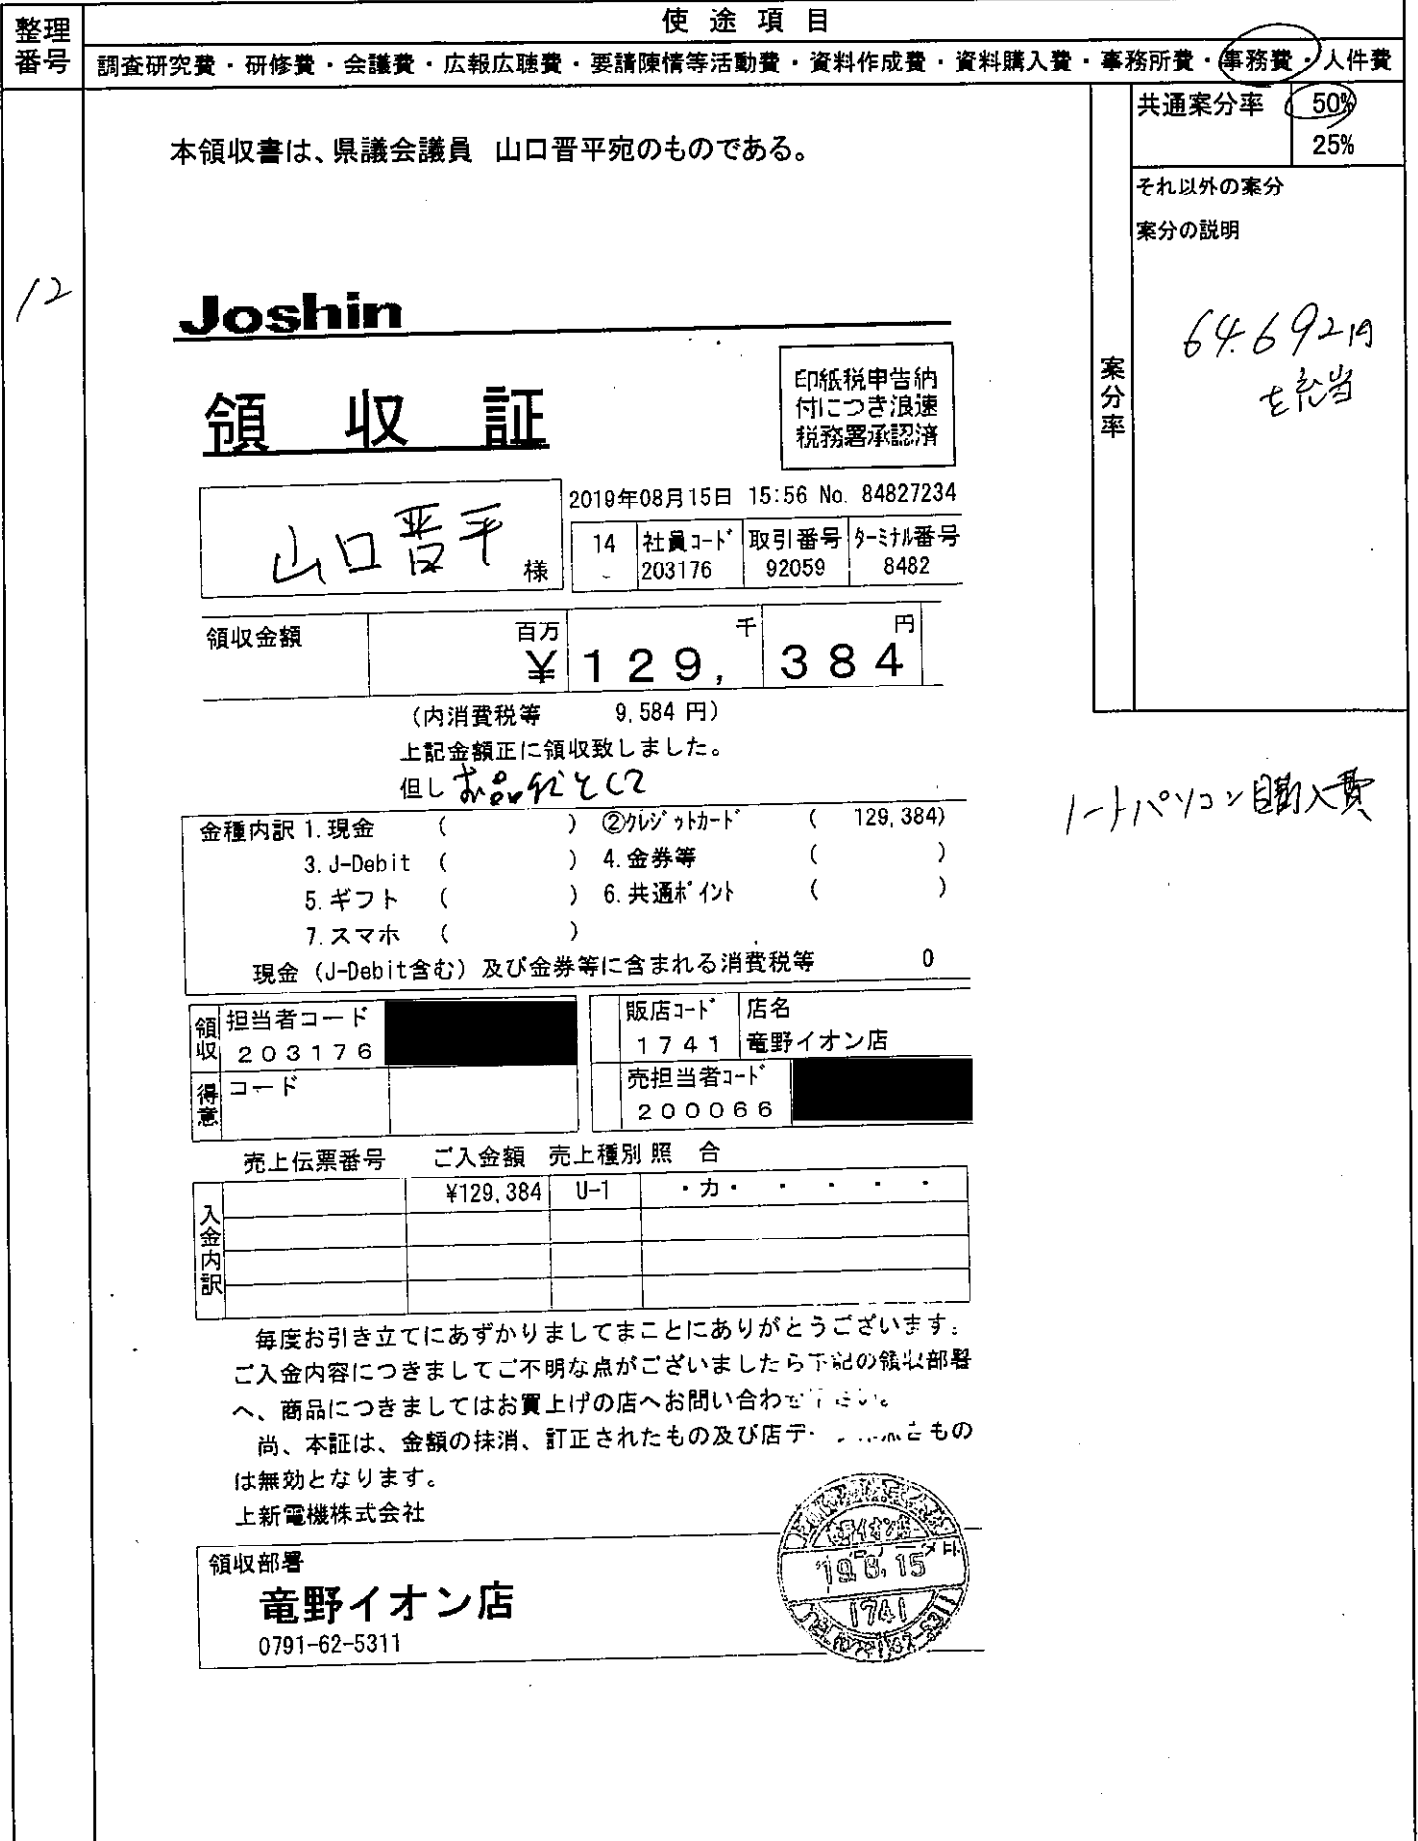 整理番号
使途項目
調査研究費・研修費・会議費・広報広聴費・要請陳情等活動費・資料作成費・資料購入費・事務所費・事務費・人件費
共通案分率 50%
25%
本領収書は、県議会議員 山口晋平宛のものである。
それ以外の案分
案分の説明
12
案分率
64.692円
を充当
Joshin
領収証
印紙税申告納
付につき浪速
税務署承認済
2019年08月15日 15:56 No. 84827234
山口晋平 様
14 社員コード 取引番号 ターミナル番号
203176 92059 8482
領収金額 百万 千 円
¥129,384
(内消費税等 9,584円)
上記金額正に領収致しました。
但し お品代として
ノートパソコン購入費
金種内訳 1.現金 ( ) ②クレジットカード ( 129,384)
3.J-Debit ( ) 4.金券等 ( )
5.ギフト ( ) 6.共通ポイント ( )
7.スマホ ( )
現金(J-Debit含む)及び金券等に含まれる消費税等 0
領収 担当者コード 販店コード 店名
203176 1741 竜野イオン店
得意 コード 売担当者コード
200066
売上伝票番号 ご入金額 売上種別 照合
入金内訳
¥129,384 U-1 ・カ・・・・・
毎度お引き立てにあずかりましてまことにありがとうございます。
ご入金内容につきましてご不明な点がございましたら下記の領収部署
へ、商品につきましてはお買上げの店へお問い合わせ下さい。
尚、本証は、金額の抹消、訂正されたもの及び店 もの
は無効となります。
上新電機株式会社
領収部署
竜野イオン店
0791-62-5311
竜野イオン店
'19.8.15
1741